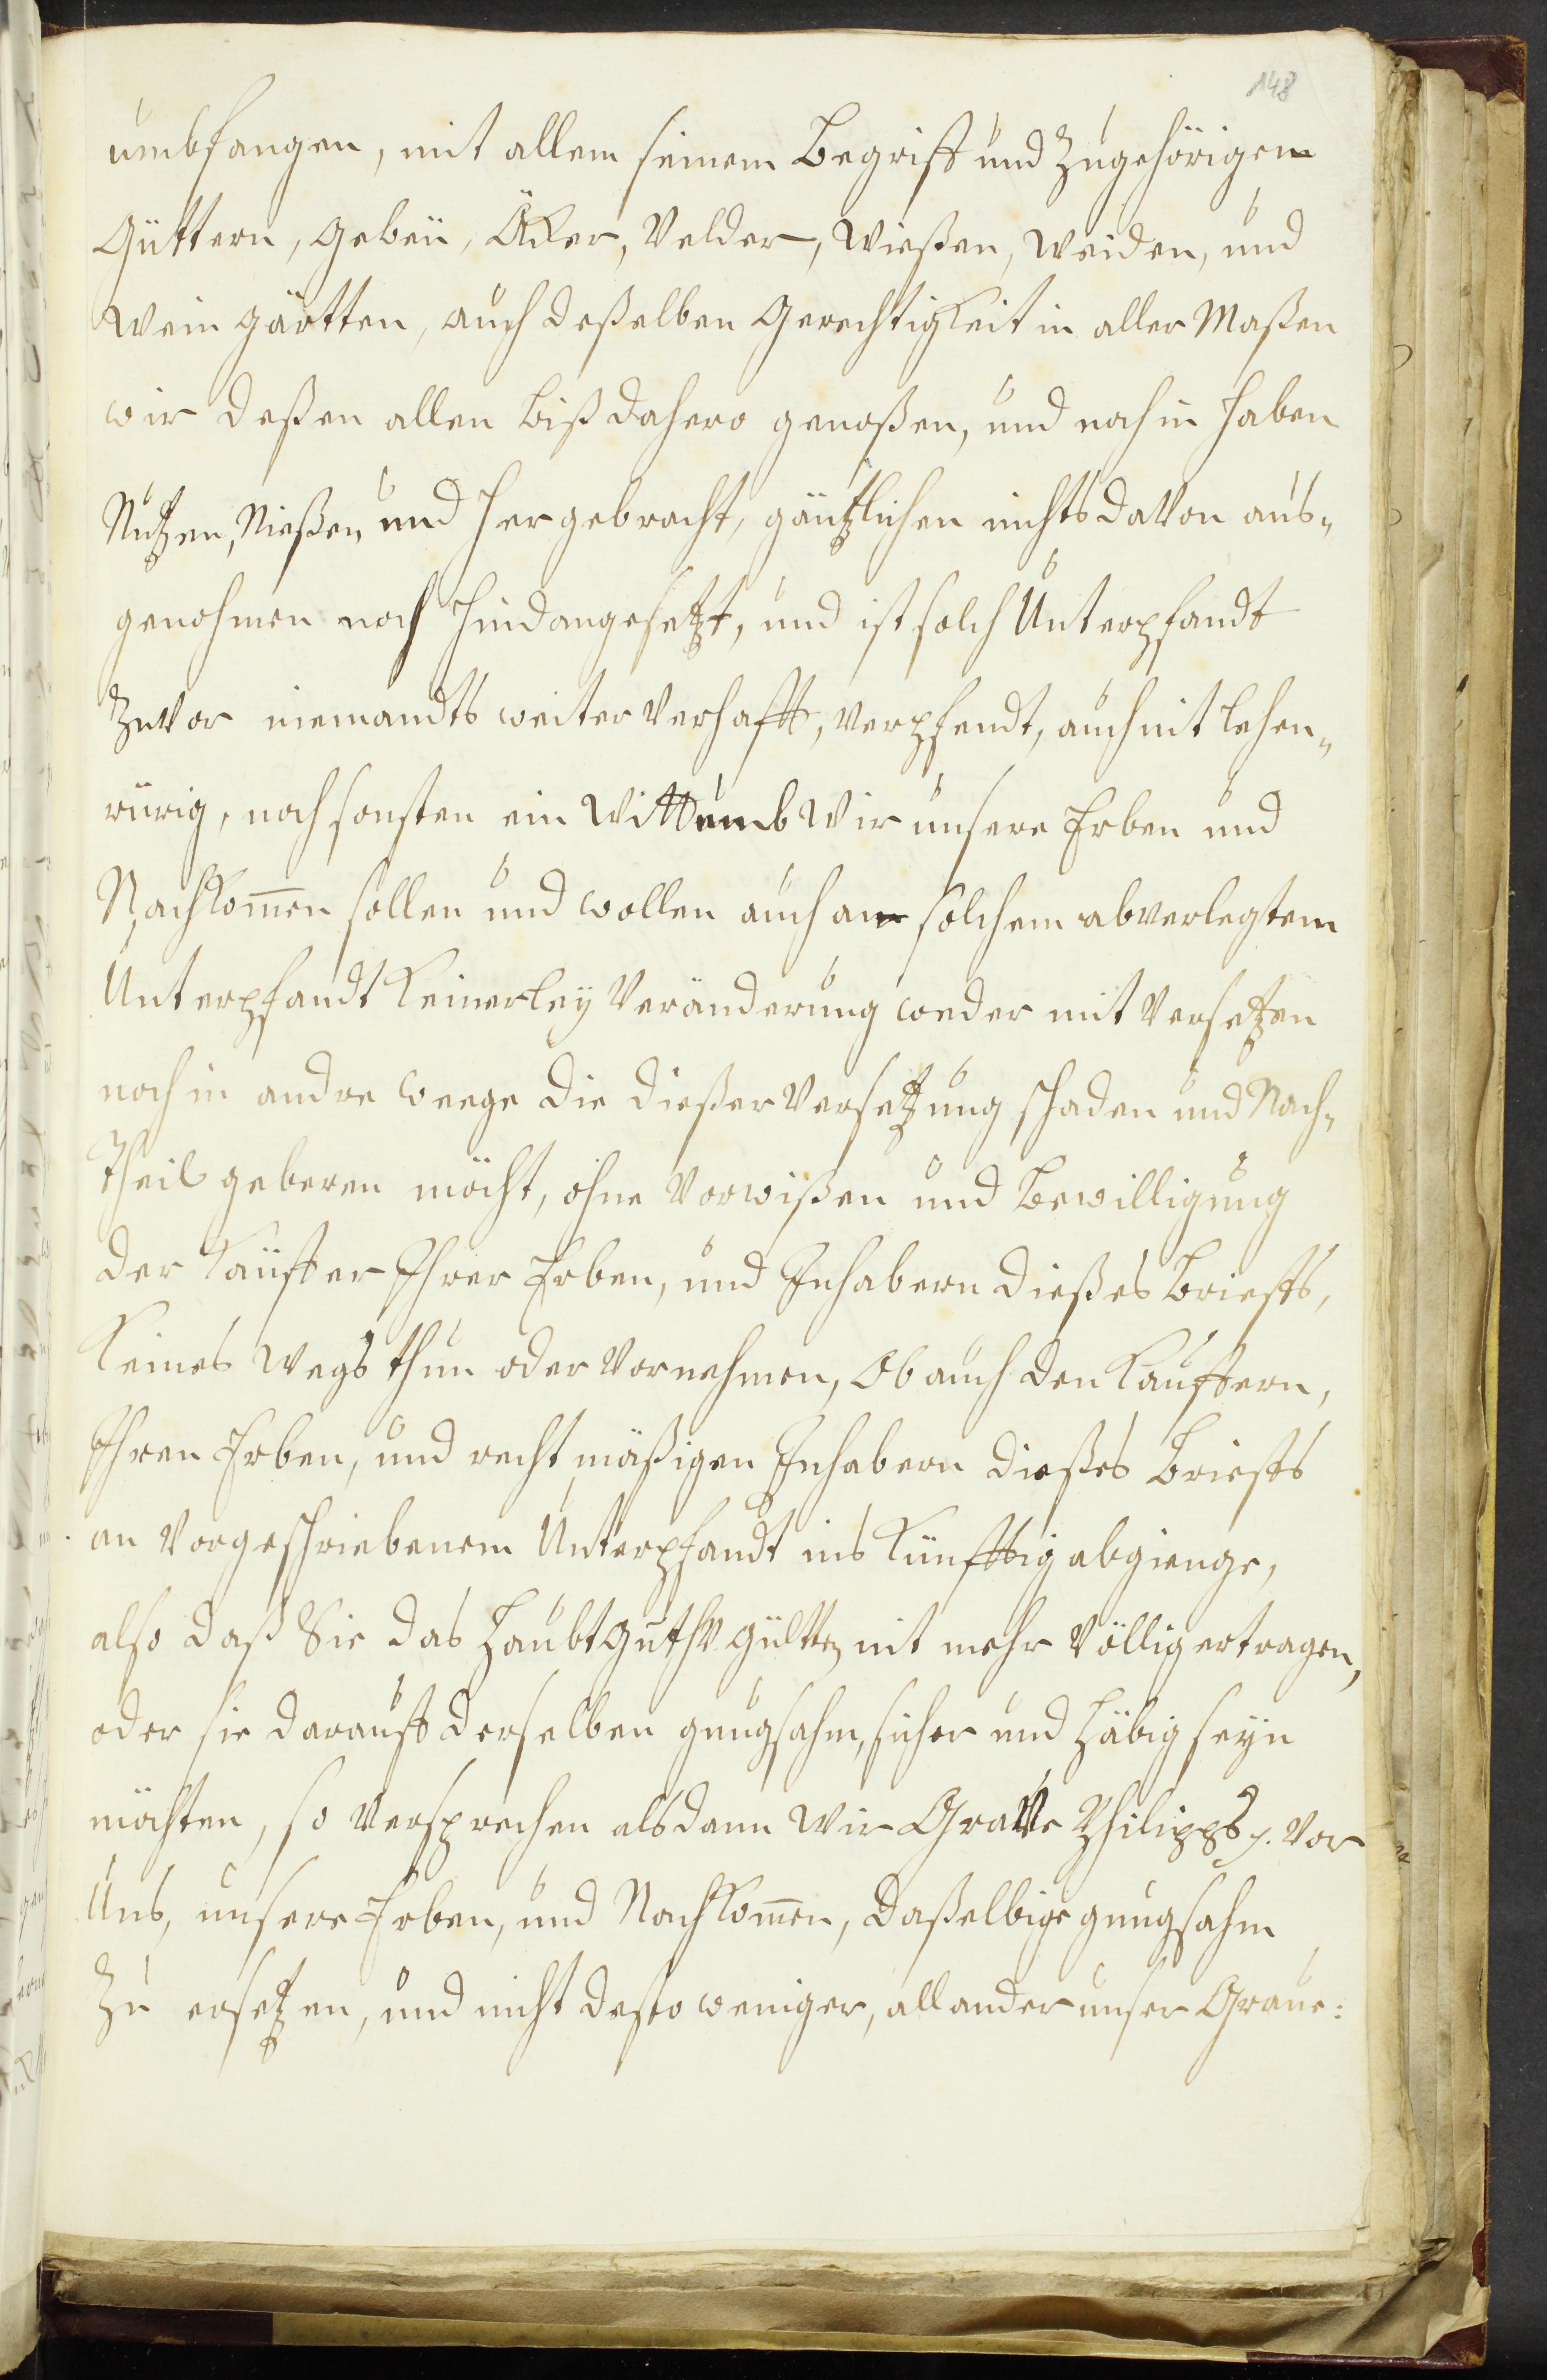 148
umbfangen, mit allem seinem Begriff und Zugehörigen
Güttern, Gebeü, Äker, Velder, Wießen, Weiden, und
Wein gärtten, auch deßelben Gerechtigkeit in aller Maßen
wir deßen allen biß dahero genoßen, und noch in haben
Nutzen, Nießen und Hergebracht, gäntzlichen nichts davon aus„
genohmen noch Hindangesetzt, und ist solch Unterpfandt
Zuvor niemandts weiter verhafft, verpfendt, auch nit lehen„
rürig, noch sonsten ein Wittumb Wir unsere Erben und
Nachkom̄en sollen und wollen auch an solchem abverlegtem
Unterpfandt keinerley Veränderung weder mit Versetzen
noch in andre weege die dießer Versetzung schaden und Nach„
theil geberen möcht, ohne Vorwißen und Bewilligung
der Käuffer Ihrer Erben, und Inhabern dießes Brieffs,
keines Wegs thun oder Vornehmen, Ob auch den Kauffern,
Ihren Erben, und recht mäßigen Inhabern dießes Brieffs
an Vorgeschriebenem Unterpfandt ins künfftig abgienge,
also daß Sie das Haubtguth v. gülten nit mehr Völlig ertragen,
oder sie darauff derselben gnugsahm, sicher und häbig seyn
möchten, so Versprechen alsdann Wir Grave Philipps p. Vor
Uns, unsere Erben, und Nachkom̄en, daßelbige gnugsahm
Zu ersetzen, und nicht desto weniger, all ander unser Grave: